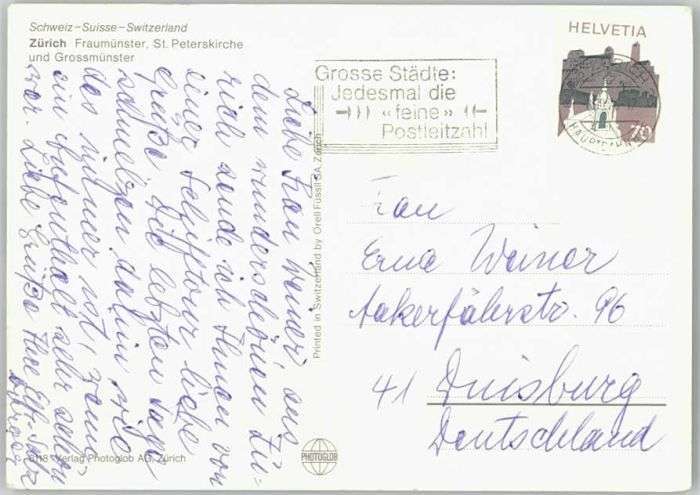 Schweiz – Suisse – Switzerland
Zürich Fraumünster, St. Peterskirche
und Grossmünster
HELVETIA
70
Grosse Städte:
Jedesmal die
«feine»
Postleitzahl
Liebe Frau Weiner! aus
dem wunderschönen Zü-
rich sende ich Ihnen von
einer Schifftour liebe
Grüße. Die letzten Tage
schmelzen dahin wie
das immer ist, wenn
ein Aufenthalt sehr schön
war. Liebe Grüße Ihre
Frau
Erna Weiner
Aakerfährstr. 96
41 Duisburg
Deutschland
Printed in Switzerland by Orell Füssli SA, Zürich
PHOTOGLOB
Verlag Photoglob AG, Zürich